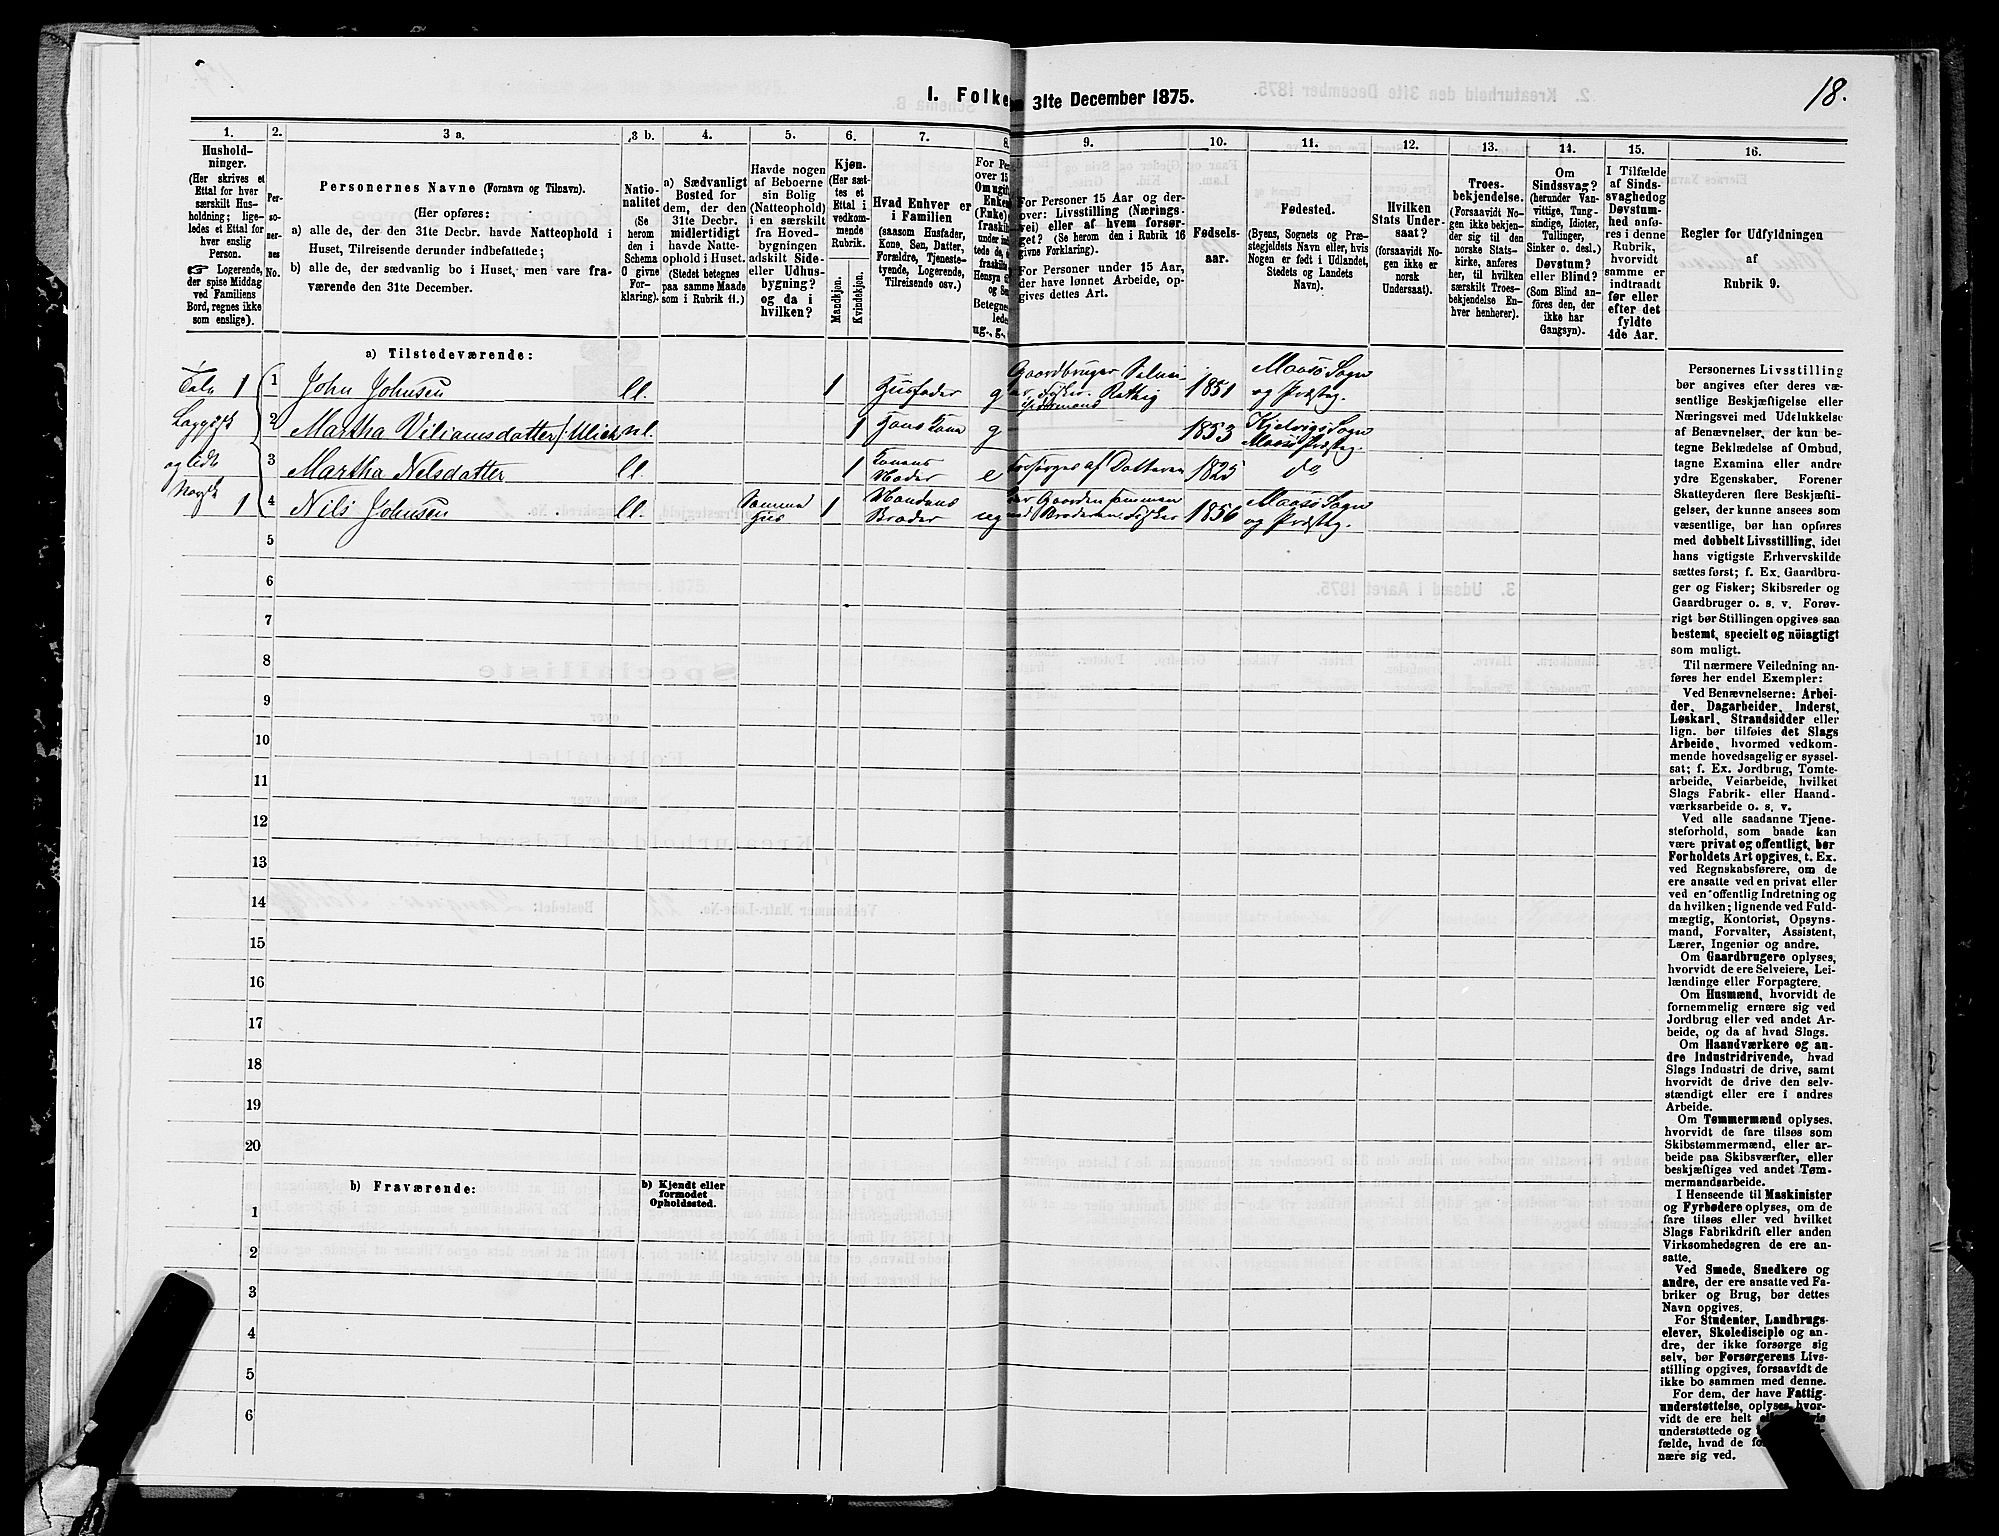 18.
I. Folke
31te December 1875.
1.
2.
3 a.
3 b.
4.
5.
6.
7.
8.
9.
10.
11.
12.
13.
14.
15.
16.
Hushold-
ninger.
(Her skrives et
Ettal for hver
særskilt Hus-
holdning; lige-
ledes et Ettal for
hver enslig
Person.
☞ Logerende,
der spise Middag
ved Familiens
Bord, regnes ikke
som enslige).
Per-
so-
ner-
nes
No.
Personernes Navne (Fornavn og Tilnavn).
(Her opføres:
a) alle de, der den 31te Decbr. havde Natteophold i
Huset, Tilreisende derunder indbefattede;
b) alle de, der sædvanlig bo i Huset, men vare fra-
værende den 31te December.
Natio-
nalitet
(Se
herom
den i
Schema
O givne
For-
klaring).
a) Sædvanligt
Bosted for
dem, der den
31te Decbr.
midlertidigt
havde Natte-
ophold i Huset.
(Stedet betegnes
paa samme Maade
som i Rubrik 11.)
Havde nogen
af Beboerne
sin Bolig
(Natteophold)
i en særskilt
fra Hoved-
bygningen
adskilt Side-
eller Udhus-
bygning?
og da i
hvilken?
Kjøn.
(Her sæt-
tes et
Ettal i
vedkom-
mende
Rubrik.
Mandkjøn.
Kvindekjøn.
Hvad Enhver er
i Familien
(saasom Husfader,
Kone, Søn, Datter,
Forældre, Tjeneste-
tyende, Logerende,
Tilreisende osv.)
For Per
over 15
Om ugift,
Enken
(Enke)
fraskilt
og Se
Betegnes
lede
ug., g.,
For Personer 15 Aar og der-
over: Livsstilling (Nærings-
vei) eller af hvem forsør-
get? (Se herom den i Rubrik 16
givne Forklaring).
For Personer under 15 Aar,
der have lønnet Arbeide, op-
gives dettes Art.
Fødsels-
aar.
Fødested.
(Byens, Sognets og Præ-
stegjeldets Navn eller, hvis
Nogen er født i Udlandet,
Stedets og Landets
Navn).
Hvilken
Stats Under-
saat?
(forsaavidt No-
gen ikke er
norsk
Undersaat).
Troes-
bekjendelse.
(Forsaavidt No-
gen ikke bekjen-
der sig til den
norske Stats-
kirke, anføres
her, til hvilken
særskilt Troes-
bekjendelse En-
hver henhører).
Om
Sindssvag?
(herunder Van-
vittige, Tung-
sindige, Idioter,
Tullinger,
Sinker o. desl.)
Døvstum?
eller Blind?
(Som Blind an-
føres den, der
ikke har
Gangsyn).
I Tilfælde
af Sinds-
svaghed og
Døvstum-
hed anfø-
res i denne
Rubrik,
hvorvidt
samme er
indtraadt
før eller
efter det
fyldte
4de Aar.
Regler for Udfyldningen
af
Rubrik 9.
a) Tilstedeværende:
Tale 1 1 John Johnsen ll. 1 Husfader g Gaardbruger Selvei- 1851 Maasø Sogn
er, Fisker. og Præsteg.
2 Martha Viliamsdatter/Ulich nl. 1 Hans Kone g 1853 Kjelvigs Sogn
Maasø Præsteg.
og lidt 3 Martha Nelsdatter ll. 1 Konens Moder e Forsørges af Datteren 1825 do
Norsk 1 4 Nils Johnsen ll. Samma Hus 1 Mandens Broder ug Gaarden sammen 1856 Maasø Sogn
Broderen. Fisker og Præsteg.
5
6
7
8
9
10
11
12
13
14
15
16
17
18
19
20
b) Fraværende:
b) Kjendt eller
formodet
Opholdssted.
1
2
3
4
5
6
Personernes Livsstilling
bør angives efter deres væ-
sentlige Beskjæftigelse eller
Næringsvei med Udelukkelse
af Benævnelser, der kun be-
tegne Beklædelse af Ombud,
tagne Examina eller andre
ydre Egenskaber. Forener
Skatteyderen flere Beskjæfti-
gelser, der kunne ansees som
væsentlige, bør han opføres
med dobbelt Livsstilling, idet
hans vigtigste Erhvervskilde
sættes først; f. Ex. Gaardbru-
ger og Fisker; Skibsreder og
Gaardbruger o. s. v. Forøv-
rigt bør Stillingen opgives saa
bestemt, specielt og nøiagtigt
som muligt.
Til nærmere Veiledning an-
føres her endel Exempler:
Ved Benævnelserne: Arbei-
der, Dagarbeider, Inderst,
Løskarl, Strandsidder eller
lign. bør tilføies det Slags
Arbeide, hvormed vedkom-
mende hovedsagelig er syssel-
sat; f. Ex. Jordbrug, Tomte-
arbeide, Veiarbeide, hvilket
Slags Fabrik- eller Haand-
værksarbeide o. s. v.
Ved alle saadanne Tjene-
steforhold, som baade kan
være privat og offentligt, bør
Forholdets Art opgives, t. Ex.
ved Regnskabsførere, om de
ere ansatte ved en privat eller
ved en offentlig Indretning og
da hvilken; lignende ved Fuld-
mægtig, Kontorist, Opsyns-
mand, Forvalter, Assistent,
Lærer, Ingeniør og andre.
Om Gaardbrugere oplyses,
hvorvidt de ere Selveiere, Lei-
lændinge eller Forpagtere.
Om Husmænd, hvorvidt de
fornemmelig ernære sig ved
Jordbrug eller ved andet Ar-
beide, og da af hvad Slags.
Om Haandværkere og an-
dre Industridrivende, hvad
Slags Industri de drive, samt
hvorvidt de drive den selv-
stændigt eller ere i andres
Arbeide.
Om Tømmermænd oplyses,
hvorvidt de fare tilsøs som
Skibstømmermænd, eller ar-
beide paa Skibsværfter, eller
beskjæftiges ved andet Tøm-
mermandsarbeide.
I Henseende til Maskinister
og Fyrbødere oplyses, om de
fare tilsøs eller ved hvilket
Slags Fabrikdrift eller anden
Virksomhedsgren de ere an-
satte.
Ved Smede, Snedkere og
andre, der ere ansatte ved Fa-
briker og Brug, bør dettes
Navn opgives.
For Studenter, Landbrugs-
elever, Skoledisciple og an-
dre, der ikke forsørge sig
selv, bør Forsørgerens Livs-
stilling opgives, forsaavidt de
ikke bo sammen med denne.
For dem, der have Fattig-
understøttelse, oplyses, hvor-
vidt de ere helt
understøttede og
fælde, hvad de
nære sig ved.